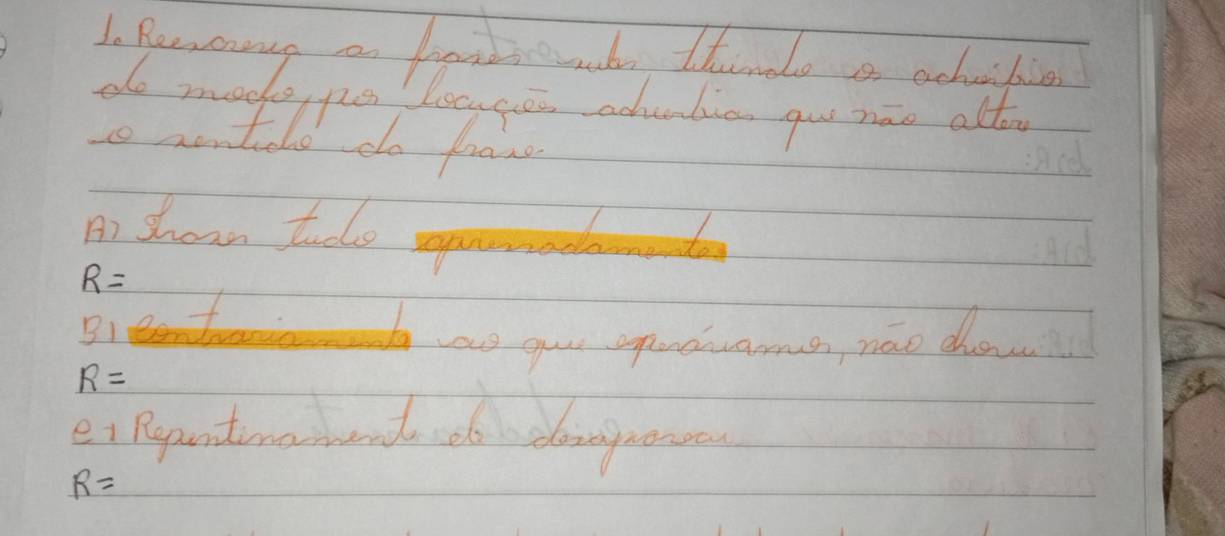 1. Reescreva as frases subs tituindo os advérbios
de modo, por locuções adverbias que não altere
o sentido da frase.
A) Trazer tudo apressadamente.
R=
B) Contrariamente ao que esperávamos, não choveu
R=
c) Repentinamente ele desapareceu
R=